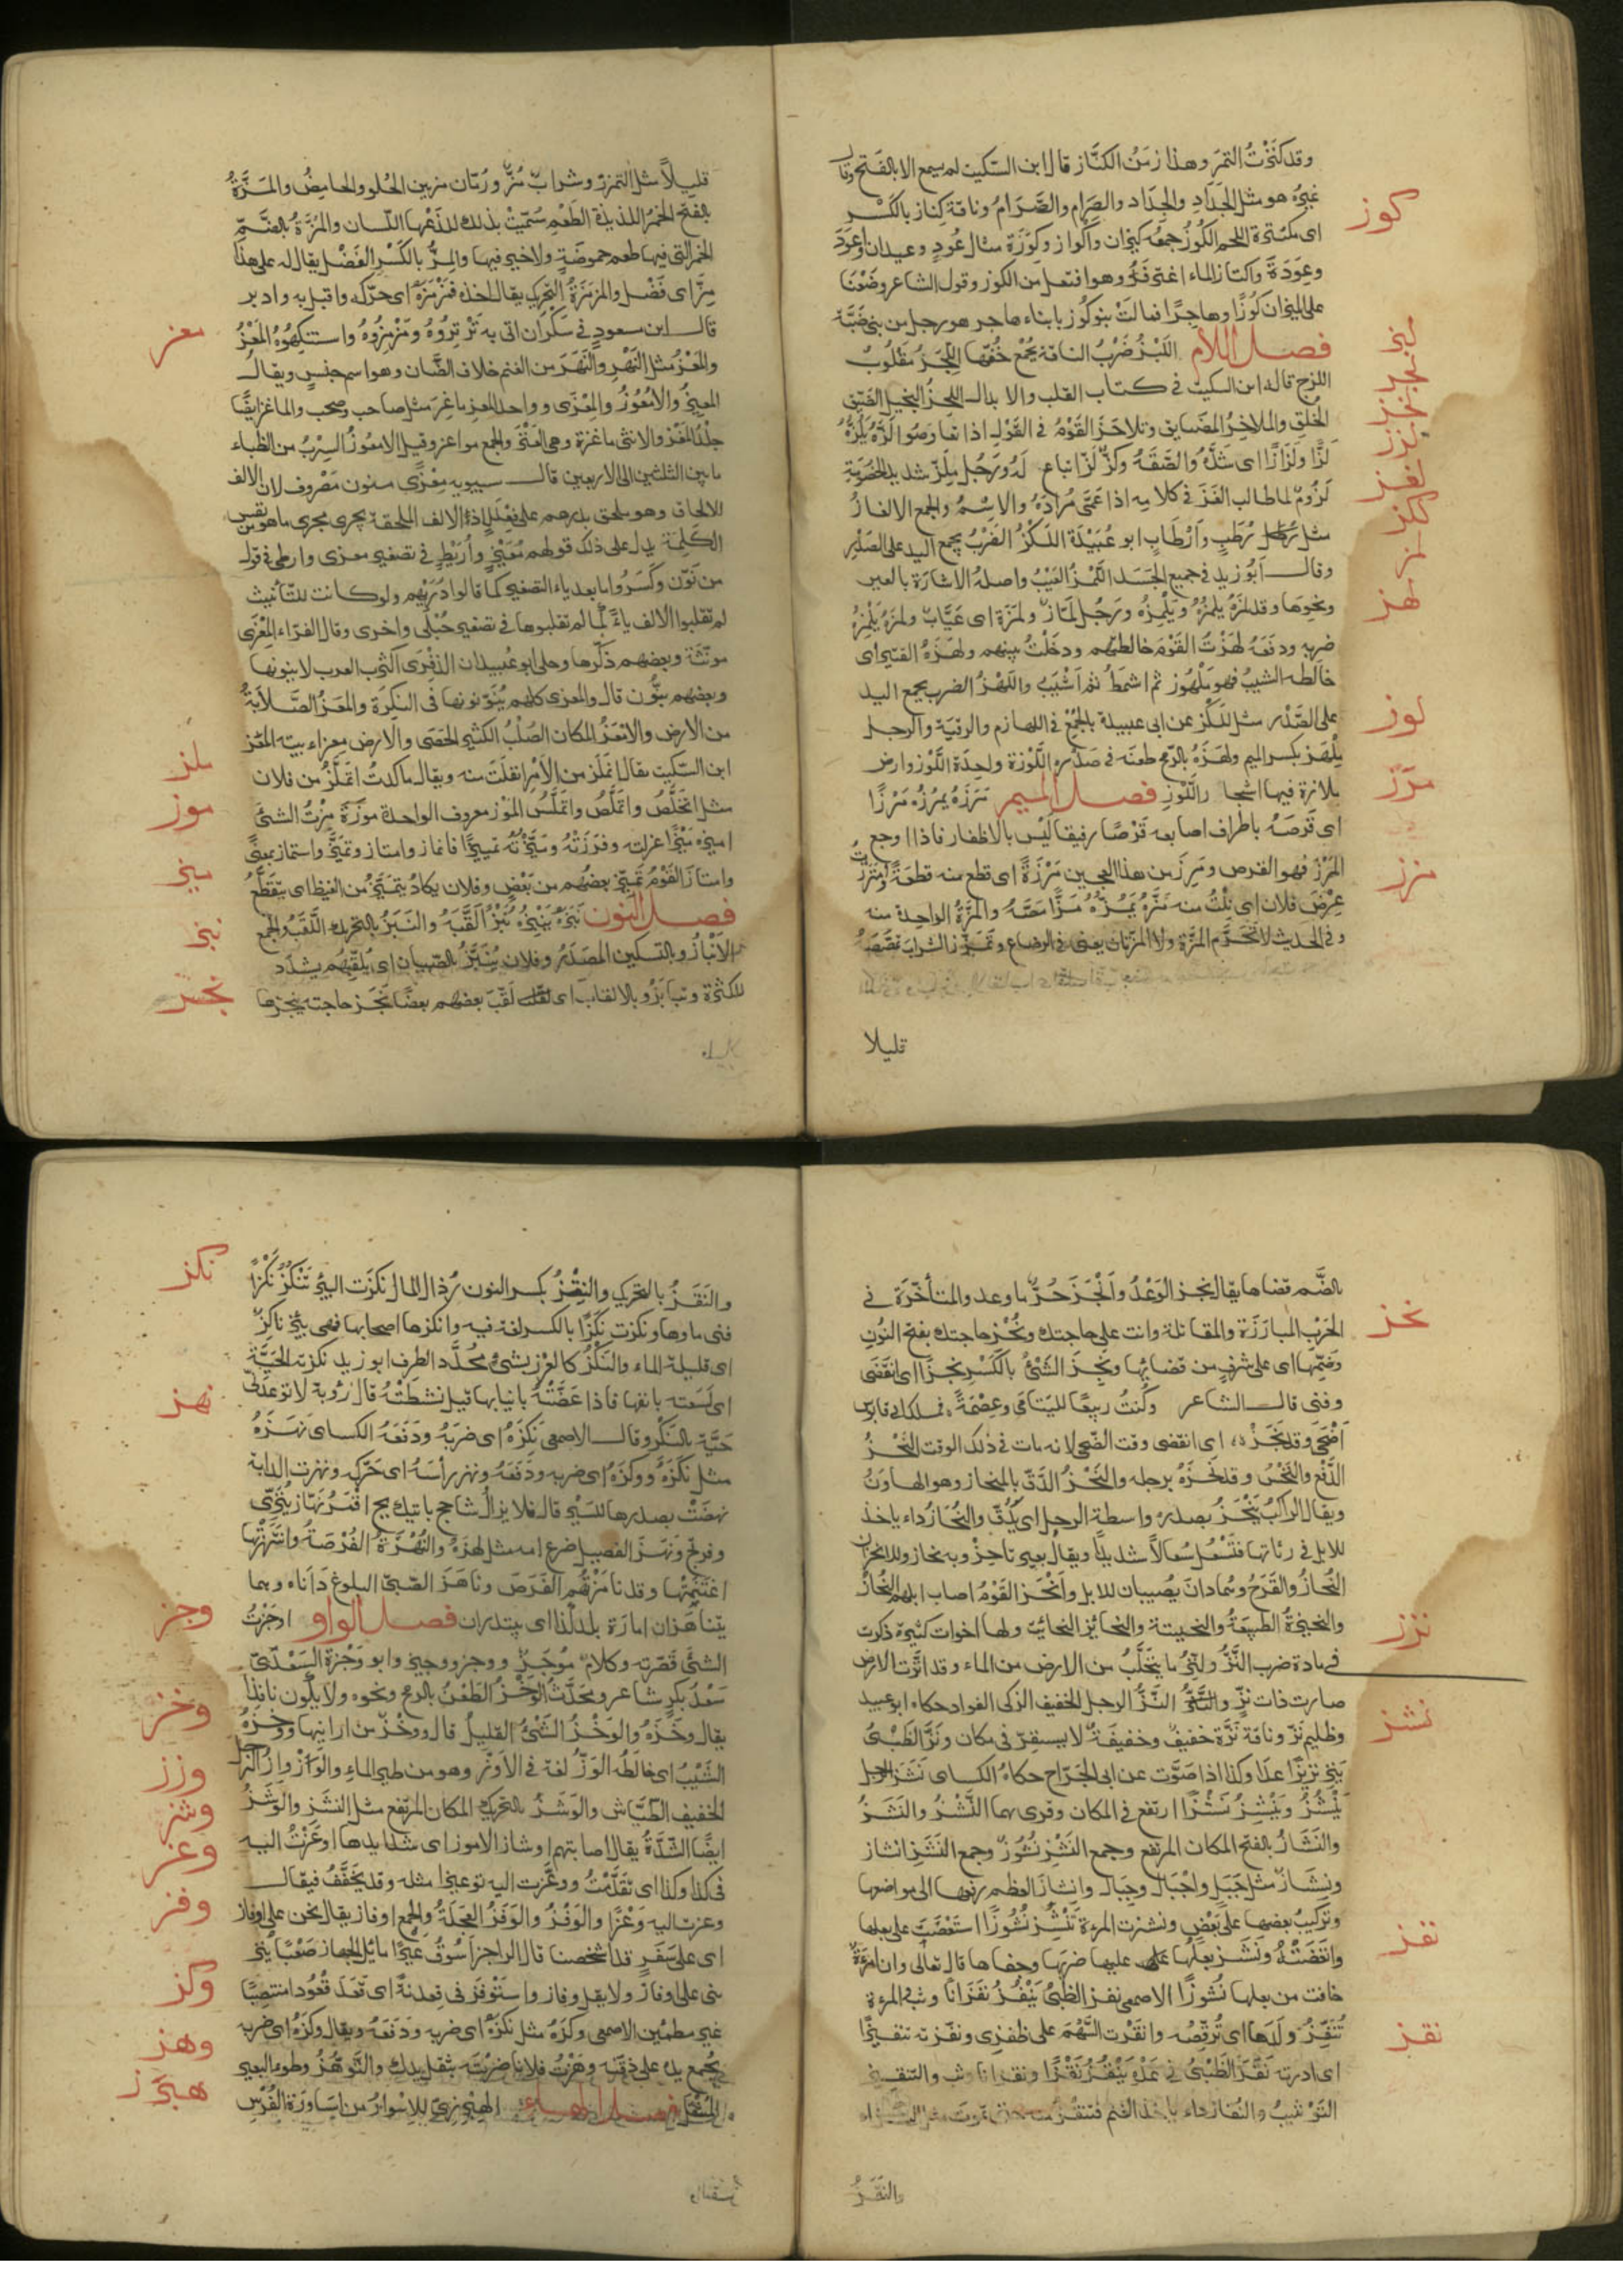 وقد كَنَزْتُ التمرَ وهذا زمَنُ الكَنَّاز قال ابن السّكيت لم يسمع الا بالفَتح وقال
غيرُه هو مثل الجَدَادِ والجِدَاد والصِّرام والصَّرَامُ وناقة كِناز بالكَسْر
اى مكتنزة اللحم الكُوزُ جمعُه كيزان واكواز وكِوَزَة مثال عُودٍ وعيدان واعوَادَ
وعِوَدَةً واكتاز الماء اغترفَهُ وهو افتعل من الكوز وقول الشاعر وضَعْنَا
على الميزان كُوزًا وهاجِرًا فمالَتْ بنو كُوز بابناء هاجر هو رجل من بنى ضَبَّة
فصل اللام اللَبْزُ ضَرْبُ الناقة بجُمْع خُفّها اللَّجِزُ مَقْلُوبُ
اللزج قاله ابن السكيت فى كتاب القلب والابدال اللَّحِزُ البخيل الضَّيِّق
الخُلقِ والملاحِزُ المضَايق وتلاحَزَ القَوْمُ فى القَوْلِ اذا تعارضوا لَزَّهُ يَلُزُّهُ
لَزًّا ولَزَازًا اى شَدَّهُ والصَقَهُ وكَزٌّ لَزٌّ اتباع لَهُ ورَجُل مِلَزٌّ شديد الخصُومَةِ
لَزُومٌ لما طالب الغَزَ فى كلامِه اذا عَمَّى مُرَادَهُ والاسْمُ والجمع الالغازُ
مثل رُطَبٍ وَأَرْطَابٍ ابو عُبَيْدَة اللَكْزُ الضَّرْبُ بجمع اليد على الصَدْرِ
وقال أبُو زيدٍ فى جميع الجَسَد اللَّمْزُ العَيْبُ واصله الاشارَة بالعين
ونحوها وقد لمزَهُ يلمُزُهُ ويَلْمِزُه ورَجُل لمّاز ولُمَزَة اى عَيَّاب ولمَزَهُ يَلْمِزُهُ
ضربه ودفَعَهُ لهَزْتُ القَوْمَ خالطتهم ودخَلْتُ بينهم ولهَزَهُ القَتير اى
خالطه الشيبُ فهو مَلْهُوز ثم اشمَطُ ثم اشيَبُ واللَهْزُ الضرب بجمع اليد
على الصَّدْر مثل اللَكْز عن ابى عبيدة بالجُمْع فى اللهازم والرقبَة والرجل
مِلْهَز بكسر الميم ولهَزَهُ بالرّمح طعنَه فى صَدْره اللَّوْزة واحدَة اللَّوْز وارض
ملازة فيها اشجار اللَّوْز فصل الميم مَرَزَهُ يمرُزه مَرْزًا
اى قَرَصَهُ باطراف اصابعه قَرْصًا رفيقا ليْس بالاظفار فاذا اوجع
المَرْز فهو القَرص ومَرَز من هذا العجين مَرْزَةً اى قطع منه قطعَةً وامترزت
عِرْضَ فلان اى نِلْتُ منه مَزَّهُ يَمُزّهُ مَزًّا مَصَّهُ والمَزَّةُ الواحدة منه
وفى الحديث لا تُحَرِّم المَزَّة ولا المَزّتان يعنى فى الرضاع وتمَزّزَ الشرابَ تمَصَّصَهُ
قليلا
كوز
لبز
لجز
لحز
لزز
لغز
لكز
لمز
لهز
لوز
مرز
مزز
قليلاً مثل التمزّز وشرابٌ مُزٌّ ورُمّان مز بين الحُلو والحامِضُ والمَزَّةُ
بالفتح الخمرُ اللذيذة الطَعْمِ سُمّيتْ بذلك للذعها اللّسان والمُزَّةُ بالضّم
الخمرُ التى فيها طعم حموضَةٍ ولا خير فيها والمِزُّ بالكَسْر الفَضْل يقال له على هذا
مِزٌّ اى فَضْل والمَزمَزَةُ التَّحْريك يقال اخذه فمَزْمَزَهُ اى حرّكه واقبل به وادبر
قال ابن سعودٍ فى سَكْرَان اتى به تَرْتِرُوهُ ومَزْمِزُوهُ واستنكِهُوهُ المَعْزُ
والمعَزُ مثل النَهْرِ والنَهَرَ من الغنم خلاف الضّان وهو اسم جنسٍ ويقال
المعيزُ والامْعُوزُ والمِعْزى وواحد المعز ماعِز مثل صاحب وصَحب والماعز ايضًا
جِلْدُ المَعْز والانثى ماعزة وهى العَنْز والجمع مواعز وقيل الامعُوزُ السِرْبُ من الظباء
ما بين الثلثين الى الاربعين قال سيبويه مِعْزًى منون مَصْروف لان الالف
للالحاق وهو ملحق بدرهم على فِعْلَلٍ لان الالف الملحقة تجرى مجرى ما هو من نفس
الكَلِمَة يدل على ذلك قولهم مُعَيْزٍ وأُرَيْطٍ فى تصغير معزى وارطى فى قول
من نَوّن وكَسَرُوا ما بعد ياء التصغير كما قالوا دُرَيْهم ولو كانت للتّأنيث
لم تقلبوا الالف ياءً كما لم تقلبوها فى تصغير حُبْلى واخرى وقال الفرّاء المعْزَى
مونّثة وبعضهم ذكّرها وحكى ابو عُبيد ان الذِفْرَى اكثر العرب لا ينونها
وبعضهم ينَوّن قال والمعزى كلهم يُنَوّنونها فى النكِرَة والمَعَزُ الصَّلابَةُ
من الارض والامْعَزُ المكان الصُلْبُ الكثير الحصَى والارض معزاء بيّنة المعَز
ابن السّكيت يقال امّلَزَ من الأمْر انفَلَتَ منه ويقال ما كدتُ اتملَّزُ من فلان
مثل اتخَلَّصُ واتملَّصُ واتملَّسُ المَوْز معروف الواحدة مَوْزَة مِزْتُ الشئَ
اميزه مَيْزًا عزلته وفرَزْتُهُ ومَيَّزْتُهُ تمييزًا فانماز وامتاز وتميَّز واستماز بمعنًى
وامتازَ القَوْمُ تَميَّز بعضُهم من بَعْضٍ وفلان يكادُ يتميَّزُ من الغيظ اى يتَقَطَّعُ
فصل النون نَبَزَه يَنْبِزُهُ نَبْزًا لَقَّبَهُ والنَبَزُ بالتحريك اللَّقَبُ والجمع
الأنْبازُ وبالتسكين المصْدَرُ وفلان يُنَبِّزُ بالصّبيان اى يُلقِّبُهم يشدّد
للكثرة وتنابَزُو بالالقاب اى لقّبَ بعضهم بعضًا نَجَز حاجته ينجزها
معز
ملز
موز
ميز
نبز
نجز
بالضَّم قضاها يقال نجز الوَعْدُ وأنْجَزَ حُرٌّ ما وعد والمنَاجَزَة فى
الحَرْب المبارَزَة والمقاتلة وانت على نجاحتك ونُجْز حاجتك بفتح النُون
وضمّها اى على شرفٍ من قضائها ونَجِزَ الشَئُ بالكَسْر نجَزًا اى انقَضَى
وفنى قال الشاعر وكُنتُ ربيعًا لليتامَى وعِصْمَةً ، فملك ابى قابوس
أضْحَى وقد نَجَزْ ، اى انقضى وقت الضُّحى لانه مات فى ذلك الوقت النَحْزُ
الدَّفْع والنَخْسُ وقد نَحَزَهُ برجله والنَحْزُ الدَّقّ بالمنحاز وهو الهاوَنُ
ويقال الراكبُ يَنْحَزُ بصدره واسطة الرحل اى يَدُقّ والنُحَازُ داء ياخذ
للابل فى رئاتها فتَسْعُل سُعالاً شديدًا ويقال بعير ناحِز وبه نحاز
النُحازُ والقَرَحُ وهُما داءَان يُصيبان للابل وأنْحَزَ القَوْمُ اصاب ابلهم النُحازُ
والنحيزَةُ الطبيعَةُ والنحيتة والنحائز النحائت ولها اخوات كثيرة ذكرت
فى مادة ضرب النَّزُّ والنِّزُّ ما يتحَلَّبُ من الارض من الماء وقد انَزَّت الارض
صارت ذات نزٍّ النَّزُّ الرجل الخفيف الزكى الفواد حكاه ابو عبيد
وظليم نَزّ وناقة نَزَّة خفيف وخفيفَة لا يستقِرّ فى مكان ونَزَّ الظَبْىُ
ينِزّ نزيزًا عدَا وكذا اذا صَوَّت عن ابى الجَرّاح حكاهُ الكسائى نَشَزَ الرجل
يَنْشُزُ ويَنْشِزُ نَشْزًا ارتفع فى المكان وقرى بهما النَّشْزُ والنَشَزُ
والنَشَازُ بالفتح المكان المرتفع وجمع النَشْزِ نُشُوزٌ وجمع النَشَزِ انشاز
ونِشَاز مثل جَبَلٍ واجْبَالٍ وجِبَال وانشازَ العظم رفعها الى مواضعها
وتركيبُ بعضها على بَعْضٍ ونشزت المرءة تَنْشُزُ نُشُوزًا استَعْصَتْ على بعلها
وابْغَضَتْهُ ونَشَزَ بعلُها عليها ضربَها وجفاها قال تعالى وان امرَءة
خافت من بعلها نُشوزًا الاصمعى نفز الظبىُ يَنْفِزُ نفَزَانًا وثب المرءة
تُنَفِّزُ ولدَها اى تُرقّصُه وانفزت السَّهمَ على ظفرى ونفّزته تنفيزًا
اى ادرته نَقَزَ الظَبْىُ فى عَدْوِه يَنْقُزُ نَقْزًا ونقزانًا وثب والتنقيز
التوْثيبُ والنُقاز داء ياخذ الغنم
والنَقَزُ
نحز
نزز
نشز
نفز
نقز
والنَقَزُ بالتحريك والنِقْزُ بكسر النون رُذال المال نكزَت البئرُ تَنْكُزُ نَكْزًا
فنى ماوها ونكِزَت نَكَزًا بالكسر لغة فيه وانكزها اصحابها فهى بئر ناكِزٌ
اى قليلة الماء والنَكْزُ كالغرز بشئ مُحَدَّد الطرف ابو زيد نكزته الحَيَّة
اى لَسَعته بانفها فاذا عَضَّتْهُ بانيابها قيل نشَطَتْهُ قال رُؤبة لا توعدنّى
حَيَّة بالنَكْز وقال الاصمعى نَكَزَهُ اى ضربَهُ ودَفَعَهُ الكساى نَهَزَهُ
مثل نَكَزَهُ ووكَزَهُ اى ضربه ودَفَعَهُ ونهز رأسَهُ اى حَرَّكه ونهزت الدابة
نهضَتْ بصدرها للسَيْر قال فلا يزال شاحج ياتيك بج اقْمَرُ نَهّاز يُنَزّى
وفرتج ونهَزَ الفصيل ضرع امه مثل لهزَهُ والنُّهْزَةُ الفُرْصَةُ وانتَهَزْتُها
اغتَنَمتُها وقد ناهزْتُهُم الفُرَصَ وناهَزَ الصّبىّ البلوغ دَانَاه وهما
يتناهَزان امارَة بلد كذا اى يبتدران فصل الواو اوجَزْتُ
الشئَ قصّرته وكلامٌ مُوجَزٌ ووجز ووجيز وابو وَجْزةَ السَعْدىّ
سَعْدُ بكرٍ شاعر ومحَدَّثُ الوَخْزُ الطَعْنُ بالرمح ونحوه ولا يكون نافذًا
يقال وخَزَهُ والوَخْزُ الشَئُ القليلُ قال ووخْزٌ من ارانبها ووخزَهُ
الشَيْبُ اى خالطَهُ الوَزّ لغة فى الاوَزّ وهو من طير الماء والوَزْوازُ الرجل
الخفيف الطيّاش والوَشَزُ بالتحريك المكان المرتفع مثل النشَز والوَشَزُ
ايضًا الشدّةُ يقال اصابتهم اوشاز الامور اى شدايدها اوعَزْتُ اليه
فى كذا وكذا اى تقَدَّمْتُ ووعَّزت اليه توعيزا مثله وقد يخَفَّفُ فيقال
وعزت اليه وَعْزًا والوَفْزُ والوَفَزُ العَجَلَةُ والجمع اوفاز يقال نحن على اوفاز
اى على سَفَرٍ قد اشخصنا قال الراجز اسُوقُ عَيْرًا مائل الجهاز صَعْبًا
ينزّنى على اوفاز ولا يقل وفاز واستَوْفَز فى قعدته اى قعَدَ قُعُودا منتصِبًا
غير مطمئن الاصمعى وكَزَهُ مثل نكَزَهُ اى ضربه ودَفَعَهُ ويقال وكَزَهُ اى ضربه
بجُمع يده على ذقنه وهَزْتُ فلانا ضربْتَه بثقل يدك والتَّوهُّزُ وطوءُ البعير
المُثْقَل فصل الهاء الهِبْرِزِىّ الاسْوارُ من اسَاورَة الفُرْس
نكز
نهز
وجز
وخز
وزز
وشز
وعز
وفز
وكز
وهز
هبرز